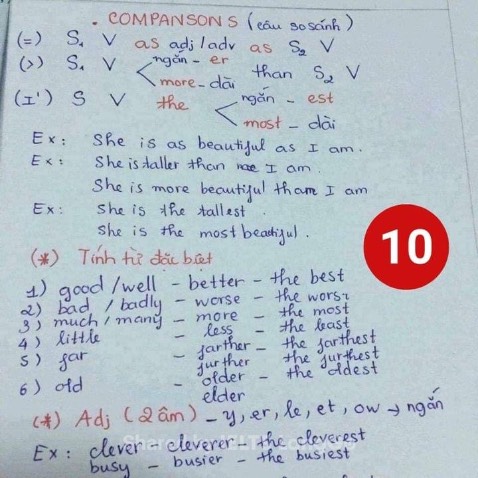 . COMPANSONS (câu so sánh)
(=) S₁ V as adj/adv as S₂ V
(>) S₁ V ngắn - er
more - dài than S₂ V
(I') S V the ngắn - est
most - dài
Ex: She is as beautiful as I am.
Ex: She is taller than I am.
She is more beautiful than I am
Ex: She is the tallest.
She is the most beautiful.
10
(*) Tính từ đặc biệt
1) good/well - better - the best
2) bad/badly - worse - the worst
3) much/many - more - the most
4) little - less - the least
5) far - farther - the farthest
further - the furthest
6) old - older - the oldest
elder
(*) Adj (2 âm) - y, er, le, et, ow → ngắn
Ex: clever - cleverer - the cleverest
busy - busier - the busiest